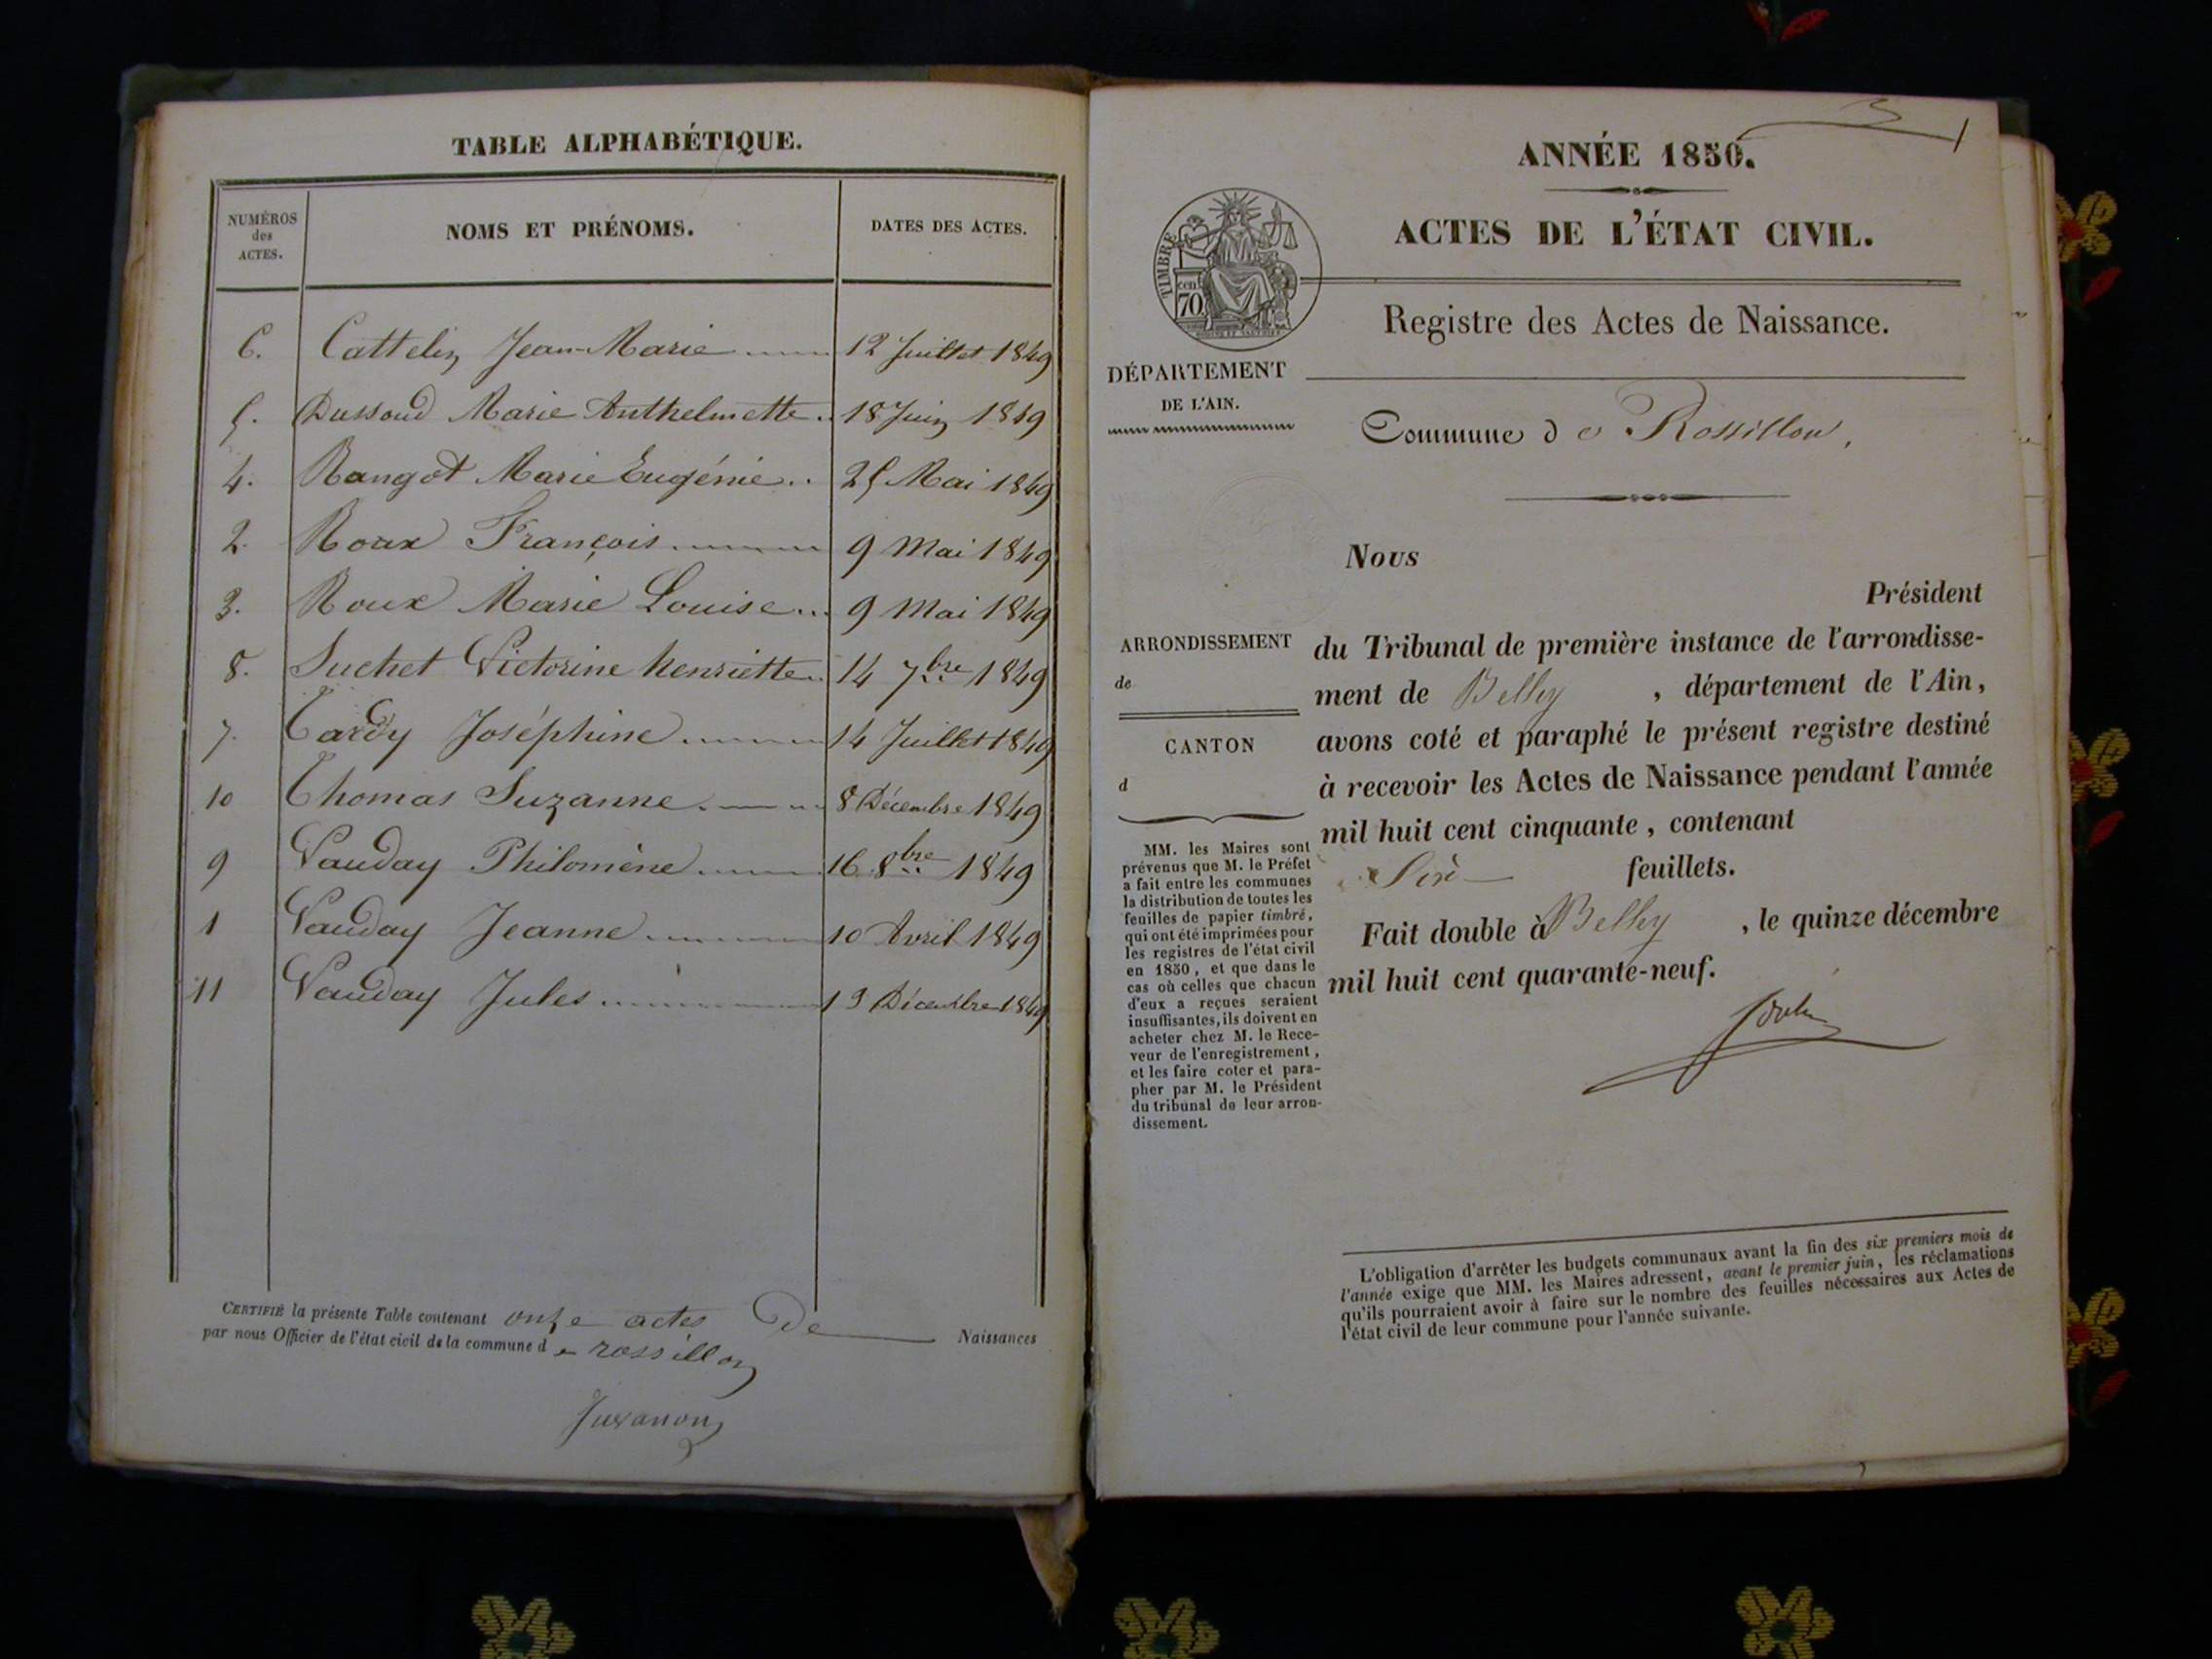 TABLE ALPHABÉTIQUE.
NUMÉROS
des
ACTES.
NOMS ET PRÉNOMS.
DATES DES ACTES.
6. Cattelin Jean-Marie 12 Juillet 1849
5. Dussoud Marie Anthelmette 18 Juin 1849
4. Rangot Marie Eugénie 25 Mai 1849
2. Roux François 9 Mai 1849
3. Roux Marie Louise 9 Mai 1849
8. Suchet Victorine henriette 14 7bre 1849
7. Tardy Joséphine 14 Juillet 1849
10 Thomas Suzanne 8 Décembre 1849
9 Vauday Philomène 16 8bre 1849
1 Vauday Jeanne 10 Avril 1849
11 Vauday Jules 13 Décembre 1849
CERTIFIÉ la présente Table contenant onze actes De Naissances
par nous Officier de l'état civil de la commune d e rossillon
Juvanon
ANNÉE 1850.
ACTES DE L'ÉTAT CIVIL.
TIMBRE
cen.
70
Registre des Actes de Naissance.
DÉPARTEMENT
DE L'AIN.
Commune d e Rossillon,
Nous
Président
ARRONDISSEMENT
de
CANTON
d
du Tribunal de première instance de l'arrondisse-
ment de Belley , département de l'Ain,
avons coté et paraphé le présent registre destiné
à recevoir les Actes de Naissance pendant l'année
mil huit cent cinquante, contenant
Six feuillets.
Fait double à Belley , le quinze décembre
mil huit cent quarante-neuf.
MM. les Maires sont
prévenus que M. le Préfet
a fait entre les communes
la distribution de toutes les
feuilles de papier timbré,
qui ont été imprimées pour
les registres de l'état civil
en 1850, et que dans le
cas où celles que chacun
d'eux a reçues seraient
insuffisantes, ils doivent en
acheter chez M. le Rece-
veur de l'enregistrement,
et les faire coter et para-
pher par M. le Président
du tribunal de leur arron-
dissement.
L'obligation d'arrêter les budgets communaux avant la fin des six premiers mois de
l'année exige que MM. les Maires adressent, avant le premier juin, les réclamations
qu'ils pourraient avoir à faire sur le nombre des feuilles nécessaires aux Actes de
l'état civil de leur commune pour l'année suivante.